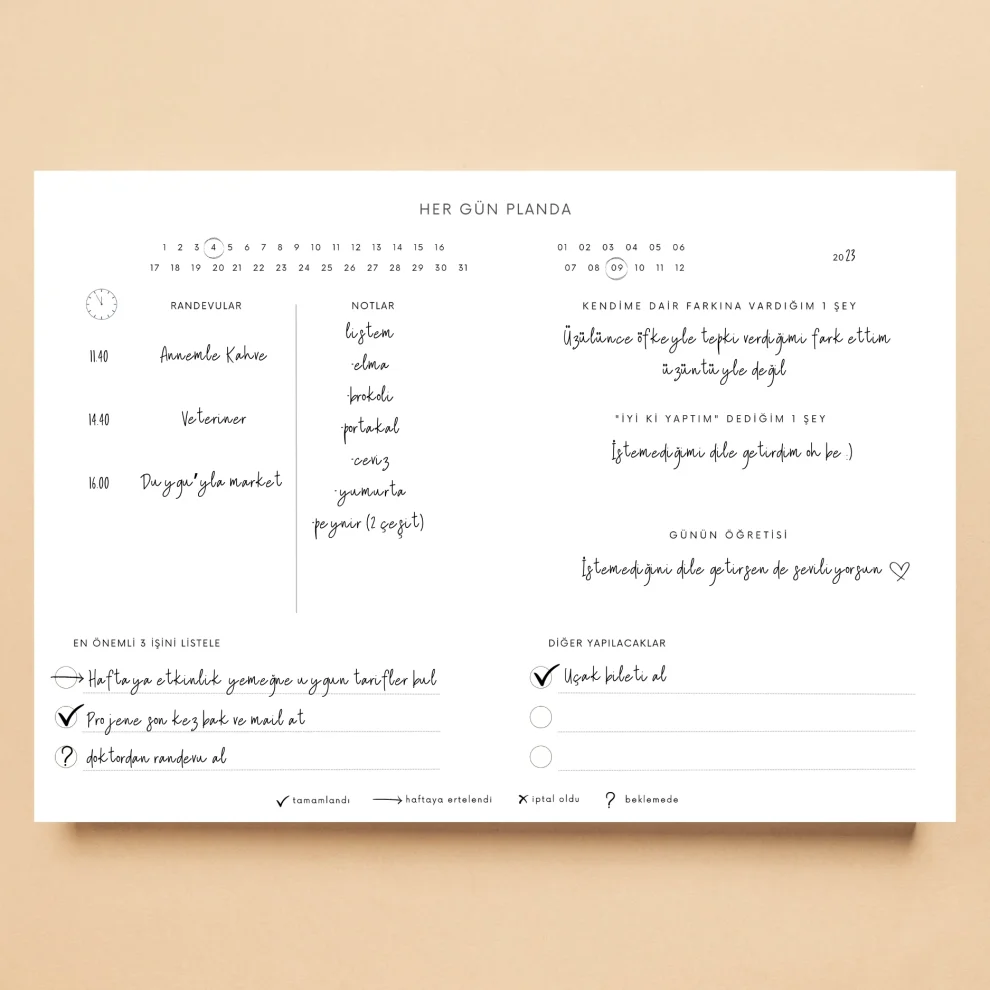 HER GÜN PLANDA
1 2 3 4 5 6 7 8 9 10 11 12 13 14 15 16
17 18 19 20 21 22 23 24 25 26 27 28 29 30 31
01 02 03 04 05 06
07 08 09 10 11 12
2023
RANDEVULAR
11.40 Annemle Kahve
14.40 Veteriner
16.00 Duygu'yla market
NOTLAR
listem
-elma
-brokoli
-portakal
-ceviz
-yumurta
-peynir (2 çeşit)
KENDİME DAİR FARKINA VARDIĞIM 1 ŞEY
Üzülünce öfkeyle tepki verdiğimi fark ettim
üzüntüyle değil
"İYİ Kİ YAPTIM" DEDİĞİM 1 ŞEY
İstemediğimi dile getirdim oh be :)
GÜNÜN ÖĞRETİSİ
İstemediğini dile getirsen de seviliyorsun ♡
EN ÖNEMLİ 3 İŞİNİ LİSTELE
→ Haftaya etkinlik yemeğne uygun tarifler bul
✓ Projene son kez bak ve mail at
? doktordan randevu al
DİĞER YAPILACAKLAR
✓ Uçak bileti al
✓ tamamlandı → haftaya ertelendi ✗ iptal oldu ? beklemede